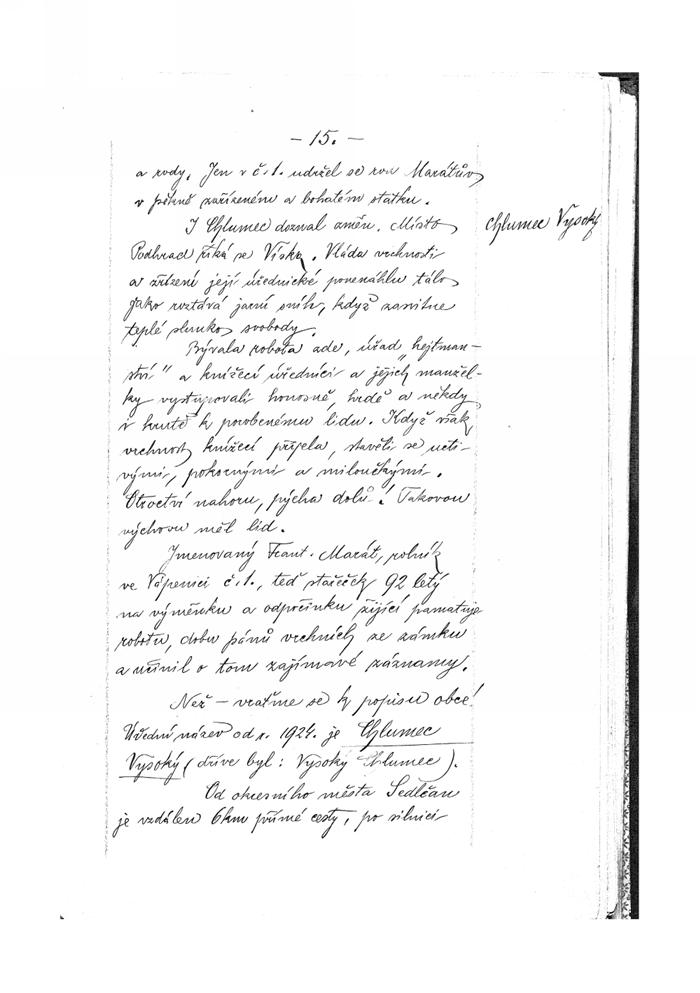 - 15. -
a rody. Jen v č. 1. udržel se rod Marátův
v pěkně zařízeném a bohatém statku.
I Chlumec doznal změn. Místo
Chlumec Vysoký
Podhrad říká se Víska. Vláda vrchnosti
a zřízení její úřednické ponenáhlu tálo
jako roztává jarní sníh, když zasvitne
teplé slunko svobody.
Bývala robota zde, úřad „hejtman-
ství" a knížecí úředníci a jejich manžel-
ky vystupovali honosně, hrdě a někdy
i krutě k porobenému lidu. Když však
vrchnost knížecí přijela, stavěli se ucti-
vými, pokornými a miloučkými.
Otroctví nahoru, pýcha dolů! Takovou
výchovu měl lid.
Jmenovaný Frant. Marát, rolník
ve Vápenici č. 1., teď stařeček 92 letý
na výměnku a odpočinku žijící pamatuje
robotu, dobu pánů vrchních ze zámku
a učinil o tom zajímavé záznamy.
Než - vraťme se k popisu obce!
Úřední název od r. 1924. je Chlumec
Vysoký (dříve byl: Vysoký Chlumec).
Od okresního města Sedlčan
je vzdálen 6 km přímé cesty, po silnici